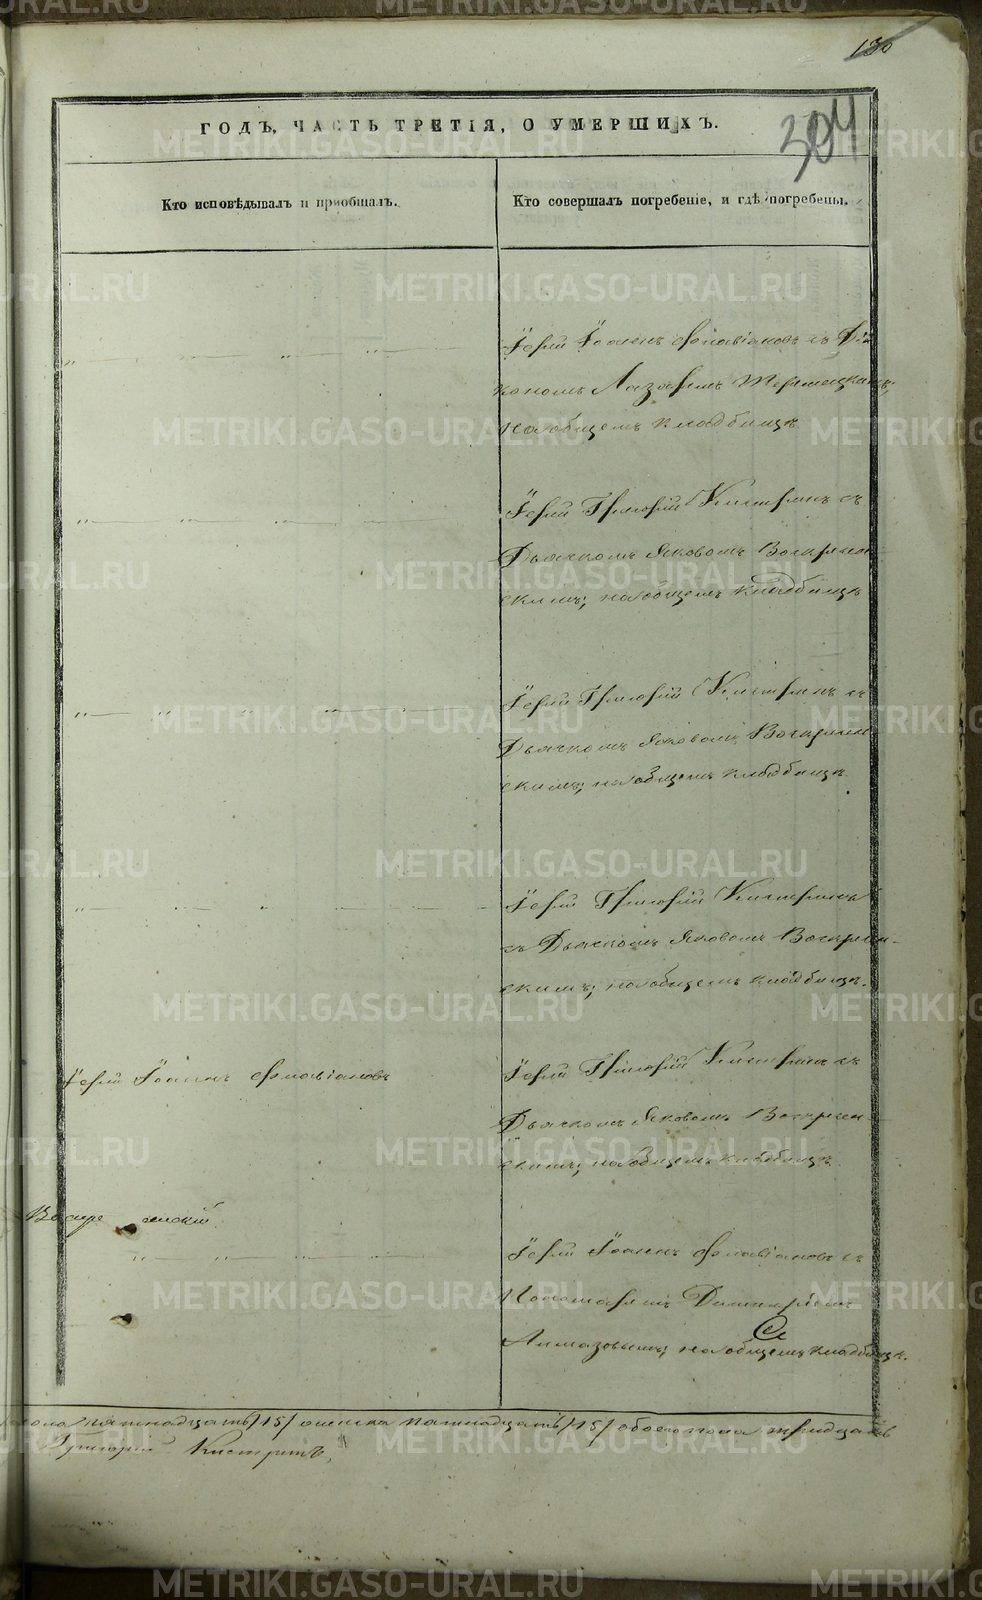 130
304
ГОДЪ, ЧАСТЬ ТРЕТІЯ, О УМЕРШИХЪ.
Кто исповѣдывалъ и пріобщалъ.
Кто совершалъ погребеніе, и гдѣ погребены.
Іерей Іоаннъ Флавіановъ съ Діа
кономъ Лазаремъ
на общемъ кладбищѣ
Іерей Григорій Кистринъ съ
Дьячкомъ Яковомъ Воскресен
скимъ; на общемъ кладбищѣ
Іерей Григорій Кистринъ съ
Дьячкомъ Яковомъ Воскресен
скимъ; на общемъ кладбищѣ
Іерей Григорій Кистринъ
съ Дьячкомъ Яковомъ Воскресен-
скимъ; на общемъ кладбищѣ.
Іерей Іоаннъ Флавіановъ
Іерей Григорій Кистринъ съ
Дьячкомъ Яковомъ Воскресен
скимъ; на общемъ кладбищѣ
Воскресенскій
Іерей Іоаннъ Флавіановъ съ
Пономаремъ Димитріемъ
Алмазовымъ; на общемъ кладбищѣ.
пола пятнадцать /15/ женска пятнадцать /15/ обоего пола тридцать
Григорій Кистринъ,
METRIKI.GASO-URAL.RU